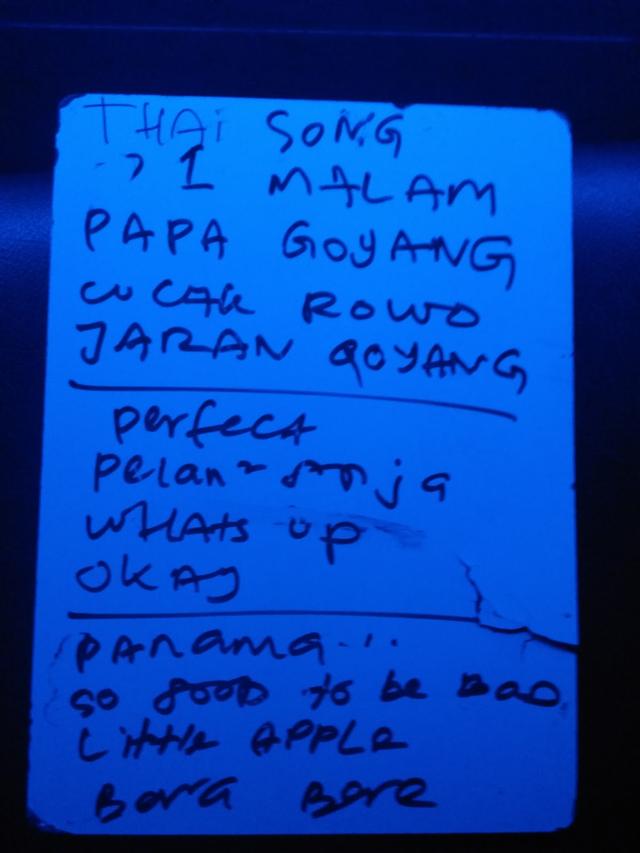 THAI SONG
-> 1 MALAM
PAPA GOYANG
CUCAK ROWO
JARAN GOYANG
perfect
pelan2 saja
WHATS up
OKAY
PANAMA...
so good to be BAD
Little APPLE
Bara Bere